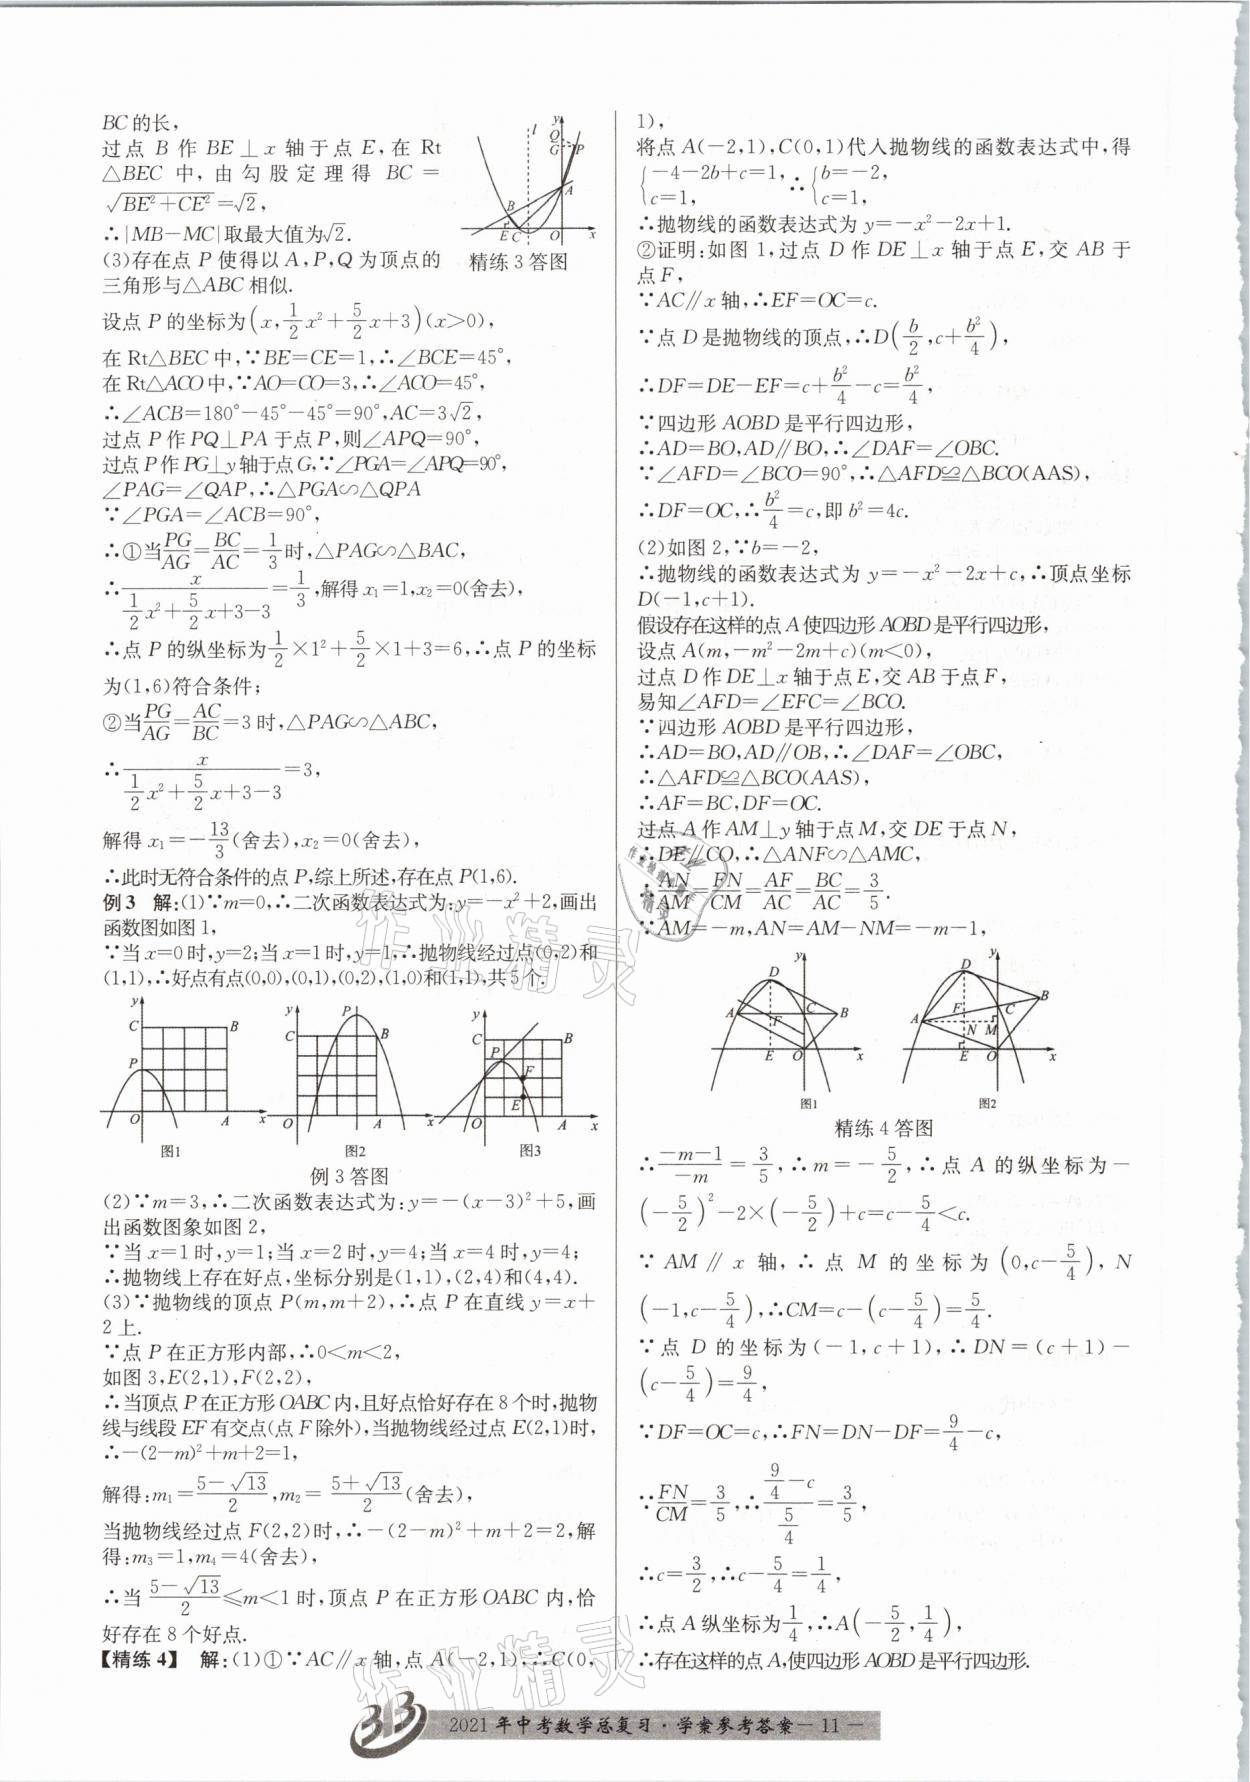 BC的长,
过点 B 作 BE⊥x 轴于点 E,在 Rt
△BEC 中,由勾股定理得 BC=
√(BE²+CE²)=√2,
∴|MB-MC|取最大值为√2.
(3)存在点 P 使得以 A,P,Q 为顶点的
三角形与△ABC 相似.
精练 3 答图
设点 P 的坐标为(x,1/2x²+5/2x+3)(x>0),
在 Rt△BEC 中,∵BE=CE=1,∴∠BCE=45°,
在 Rt△ACO 中,∵AO=CO=3,∴∠ACO=45°,
∴∠ACB=180°-45°-45°=90°,AC=3√2,
过点 P 作 PQ⊥PA 于点 P,则∠APQ=90°,
过点 P 作 PG⊥y 轴于点 G,∵∠PGA=∠APQ=90°,
∠PAG=∠QAP,∴△PGA∽△QPA
∵∠PGA=∠ACB=90°,
∴①当PG/AG=BC/AC=1/3时,△PAG∽△BAC,
∴x/(1/2x²+5/2x+3-3)=1/3,解得 x₁=1,x₂=0(舍去),
∴点 P 的纵坐标为1/2×1²+5/2×1+3=6,∴点 P 的坐标
为(1,6)符合条件;
②当PG/AG=AC/BC=3 时,△PAG∽△ABC,
∴x/(1/2x²+5/2x+3-3)=3,
解得 x₁=-13/3(舍去),x₂=0(舍去),
∴此时无符合条件的点 P,综上所述,存在点 P(1,6).
例 3 解:(1)∵m=0,∴二次函数表达式为:y=-x²+2,画出
函数图如图 1,
∵当 x=0 时,y=2;当 x=1 时,y=1,∴抛物线经过点(0,2)和
(1,1),∴好点有点(0,0),(0,1),(0,2),(1,0)和(1,1),共 5 个.
图1 图2 图3
例 3 答图
(2)∵m=3,∴二次函数表达式为:y=-(x-3)²+5,画
出函数图象如图 2,
∵当 x=1 时,y=1;当 x=2 时,y=4;当 x=4 时,y=4;
∴抛物线上存在好点,坐标分别是(1,1),(2,4)和(4,4).
(3)∵抛物线的顶点 P(m,m+2),∴点 P 在直线 y=x+
2 上.
∵点 P 在正方形内部,∴0<m<2,
如图 3,E(2,1),F(2,2),
∴当顶点 P 在正方形 OABC 内,且好点恰好存在 8 个时,抛物
线与线段 EF 有交点(点 F 除外),当抛物线经过点 E(2,1)时,
∴-(2-m)²+m+2=1,
解得:m₁=(5-√13)/2,m₂=(5+√13)/2(舍去),
当抛物线经过点 F(2,2)时,∴-(2-m)²+m+2=2,解
得:m₃=1,m₄=4(舍去),
∴当 (5-√13)/2≤m<1 时,顶点 P 在正方形 OABC 内,恰
好存在 8 个好点.
【精练 4】 解:(1)①∵AC∥x 轴,点 A(-2,1),∴C(0,
1),
将点 A(-2,1),C(0,1)代入抛物线的函数表达式中,得
{-4-2b+c=1, ∴{b=-2,
{c=1, {c=1,
∴抛物线的函数表达式为 y=-x²-2x+1.
②证明:如图 1,过点 D 作 DE⊥x 轴于点 E,交 AB 于
点 F,
∵AC∥x 轴,∴EF=OC=c.
∵点 D 是抛物线的顶点,∴D(b/2,c+b²/4),
∴DF=DE-EF=c+b²/4-c=b²/4,
∵四边形 AOBD 是平行四边形,
∴AD=BO,AD∥BO,∴∠DAF=∠OBC.
∵∠AFD=∠BCO=90°,∴△AFD≌△BCO(AAS),
∴DF=OC,∴b²/4=c,即 b²=4c.
(2)如图 2,∵b=-2,
∴抛物线的函数表达式为 y=-x²-2x+c,∴顶点坐标
D(-1,c+1).
假设存在这样的点 A 使四边形 AOBD 是平行四边形,
设点 A(m,-m²-2m+c)(m<0),
过点 D 作 DE⊥x 轴于点 E,交 AB 于点 F,
易知∠AFD=∠EFC=∠BCO.
∵四边形 AOBD 是平行四边形,
∴AD=BO,AD∥OB,∴∠DAF=∠OBC,
∴△AFD≌△BCO(AAS),
∴AF=BC,DF=OC.
过点 A 作 AM⊥y 轴于点 M,交 DE 于点 N,
∴DE∥CO,∴△ANF∽△AMC,
∴AN/AM=FN/CM=AF/AC=BC/AC=3/5.
∵AM=-m,AN=AM-NM=-m-1,
图1 图2
精练 4 答图
∴(-m-1)/(-m)=3/5,∴m=-5/2,∴点 A 的纵坐标为-
(-5/2)²-2×(-5/2)+c=c-5/4<c.
∵AM∥x 轴,∴点 M 的坐标为(0,c-5/4),N
(-1,c-5/4),∴CM=c-(c-5/4)=5/4.
∵点 D 的坐标为(-1,c+1),∴DN=(c+1)-
(c-5/4)=9/4,
∵DF=OC=c,∴FN=DN-DF=9/4-c,
∵FN/CM=3/5,∴(9/4-c)/(5/4)=3/5,
∴c=3/2,∴c-5/4=1/4,
∴点 A 纵坐标为1/4,∴A(-5/2,1/4),
∴存在这样的点 A,使四边形 AOBD 是平行四边形.
2021 年中考数学总复习·学案参考答案— 11 —
作业精灵
作业精灵